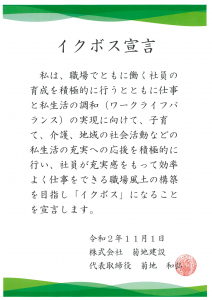 イクボス宣言
私は、職場でともに働く社員の
育成を積極的に行うとともに仕事
と私生活の調和（ワークライフバ
ランス）の実現に向けて、子育
て、介護、地域の社会活動などの
私生活の充実への応援を積極的に
行い、社員が充実感をもって効率
よく仕事をできる職場風土の構築
を目指し「イクボス」になること
を宣言します。
令和２年１１月１日
株式会社　菊地建設
代表取締役　菊地　和